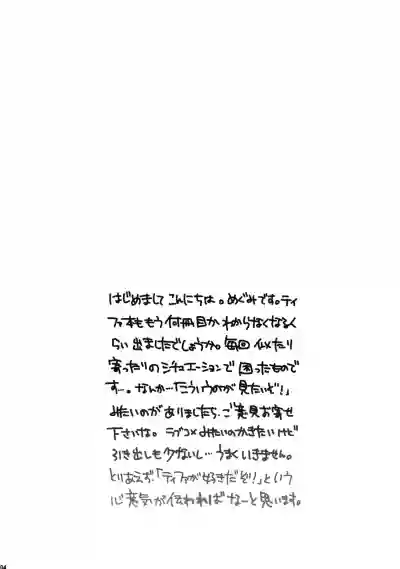 はじめまして こんにちは。めぐみです。ティ
ファ本ももう何冊目か わからなくなるく
らい出ましたでしょうか。毎回 似たり
寄ったりのシチュエーションで 困ったもので
す…。なんか…「こういうのが見たいぞ!」
みたいのがありましたら、ご意見お寄せ
下さいな。ラブコメみたいのかきたいけど
引き出しも少ないし…うまくいきません。
とりあえず、「ティファが好きだぞ!」という
心意気が伝わればなーと思います。
04